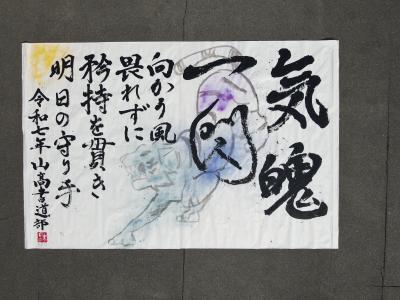 気魄
一閃
向かう風
畏れずに
矜持を貫き
明日の守り手
令和七年 山高書道部